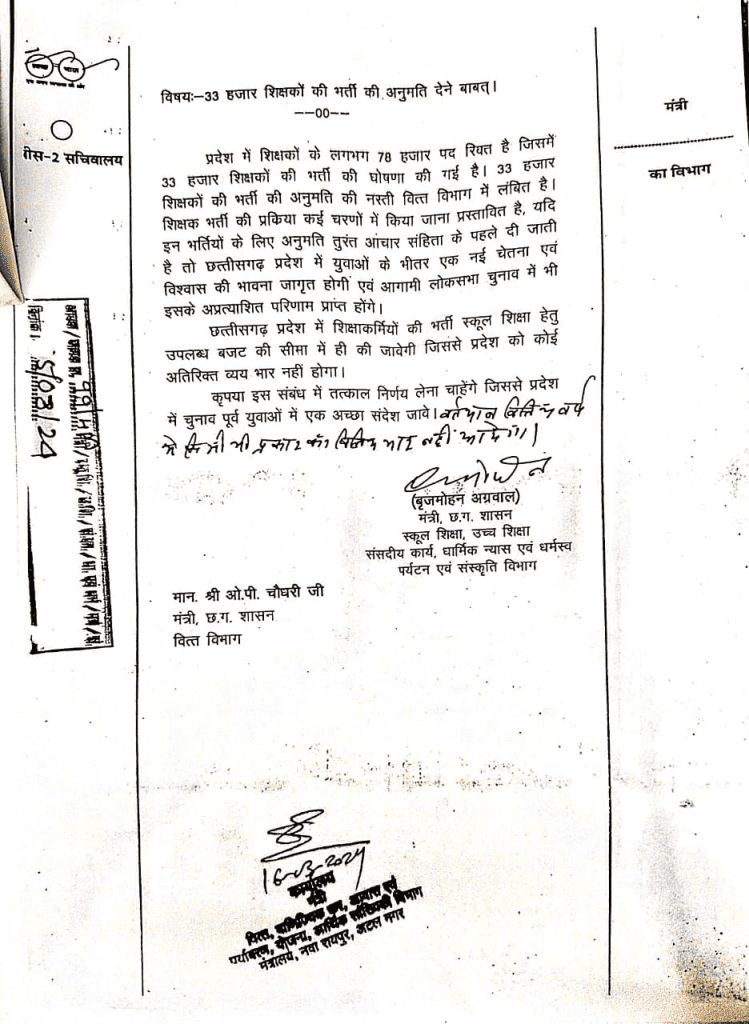 स्वच्छ भारत
एक कदम स्वच्छता की ओर
रीस-2 सचिवालय
मंत्री
का विभाग
विषयः–33 हजार शिक्षकों की भर्ती की अनुमति देने बाबत्।
––00––
प्रदेश में शिक्षकों के लगभग 78 हजार पद रिक्त है जिसमें
33 हजार शिक्षकों की भर्ती की घोषणा की गई है। 33 हजार
शिक्षकों की भर्ती की अनुमति की नस्ती वित्त विभाग में लंबित है।
शिक्षक भर्ती की प्रकिया कई चरणों में किया जाना प्रस्तावित है, यदि
इन भर्तियों के लिए अनुमति तुरंत आचार संहिता के पहले दी जाती
है तो छत्तीसगढ़ प्रदेश में युवाओं के भीतर एक नई चेतना एवं
विश्वास की भावना जागृत होगी एवं आगामी लोकसभा चुनाव में भी
इसके अप्रत्याशित परिणाम प्राप्त होंगे।
छत्तीसगढ़ प्रदेश में शिक्षाकर्मियों की भर्ती स्कूल शिक्षा हेतु
उपलब्ध बजट की सीमा में ही की जावेगी जिससे प्रदेश को कोई
अतिरिक्त व्यय भार नहीं होगा।
कृपया इस संबंध में तत्काल निर्णय लेना चाहेंगे जिससे प्रदेश
में चुनाव पूर्व युवाओं में एक अच्छा संदेश जावे। वर्तमान वित्तिय वर्ष
मे किसी भी प्रकार का वित्तिय भार नहीं आयेगा।
(बृजमोहन अग्रवाल)
मंत्री, छ.ग. शासन
स्कूल शिक्षा, उच्च शिक्षा
संसदीय कार्य, धार्मिक न्यास एवं धर्मस्व
पर्यटन एवं संस्कृति विभाग
मान. श्री ओ.पी. चौधरी जी
मंत्री, छ.ग. शासन
वित्त विभाग
दिनांक
5/03/24
16-03-2024
कार्यालय
मंत्री
वित्त, वाणिज्यिक कर, आवास एवं
पर्यावरण, योजना, आर्थिक सांख्यिकी विभाग
मंत्रालय, नवा रायपुर, अटल नगर